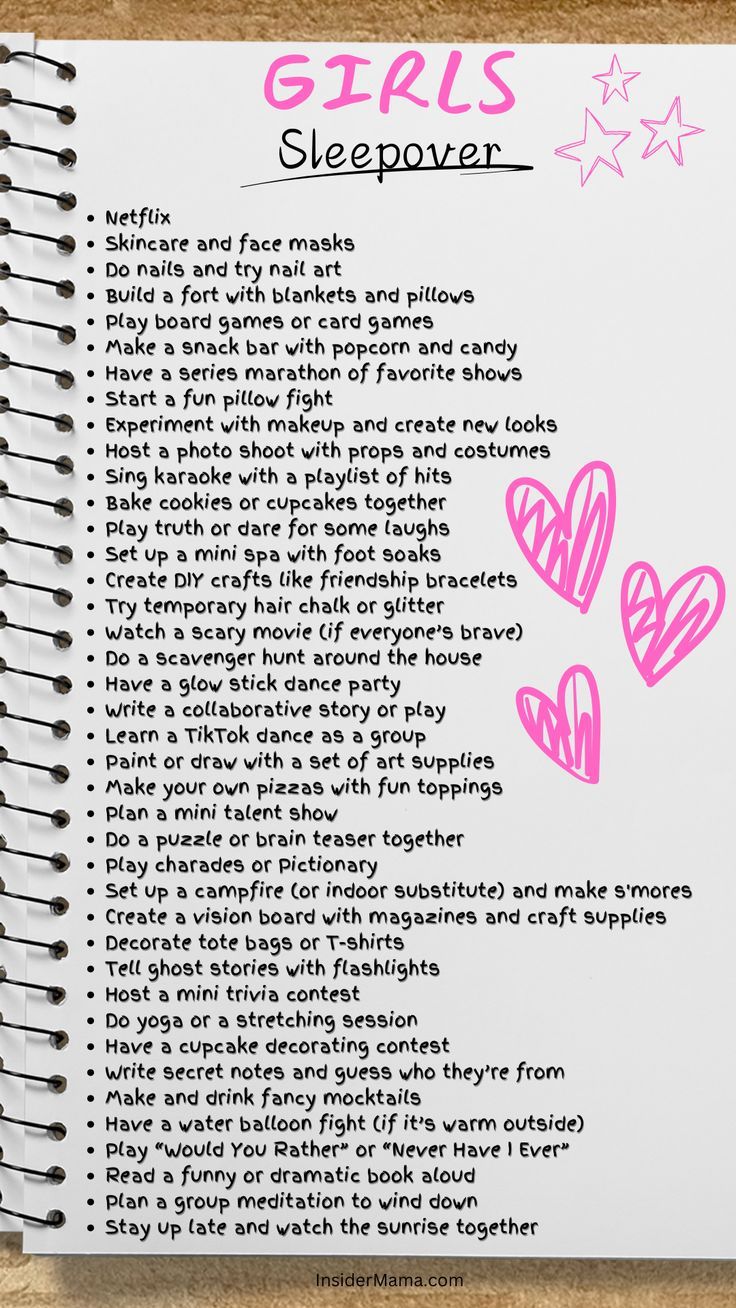 GIRLS
Sleepover
• Netflix
• Skincare and face masks
• Do nails and try nail art
• Build a fort with blankets and pillows
• Play board games or card games
• Make a snack bar with popcorn and candy
• Have a series marathon of favorite shows
• Start a fun pillow fight
• Experiment with makeup and create new looks
• Host a photo shoot with props and costumes
• Sing karaoke with a playlist of hits
• Bake cookies or cupcakes together
• Play truth or dare for some laughs
• Set up a mini spa with foot soaks
• Create DIY crafts like friendship bracelets
• Try temporary hair chalk or glitter
• Watch a scary movie (if everyone’s brave)
• Do a scavenger hunt around the house
• Have a glow stick dance party
• Write a collaborative story or play
• Learn a TikTok dance as a group
• Paint or draw with a set of art supplies
• Make your own pizzas with fun toppings
• Plan a mini talent show
• Do a puzzle or brain teaser together
• Play charades or Pictionary
• Set up a campfire (or indoor substitute) and make s'mores
• Create a vision board with magazines and craft supplies
• Decorate tote bags or T-shirts
• Tell ghost stories with flashlights
• Host a mini trivia contest
• Do yoga or a stretching session
• Have a cupcake decorating contest
• Write secret notes and guess who they’re from
• Make and drink fancy mocktails
• Have a water balloon fight (if it’s warm outside)
• Play “Would You Rather” or “Never Have I Ever”
• Read a funny or dramatic book aloud
• Plan a group meditation to wind down
• Stay up late and watch the sunrise together
InsiderMama.com